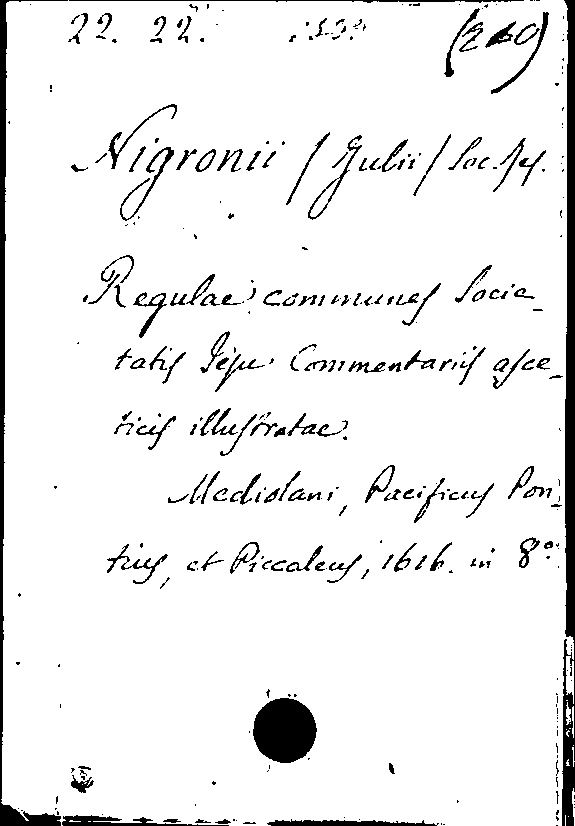 22. 22.
Nigronii / Julii / Soc. Jes.
Regulae communes Socie-
tatis Jesu Commentariis asce-
ticis illustratae.
Mediolani, Pacificus Pon-
tius, et Piccaleus, 1616. in 8°